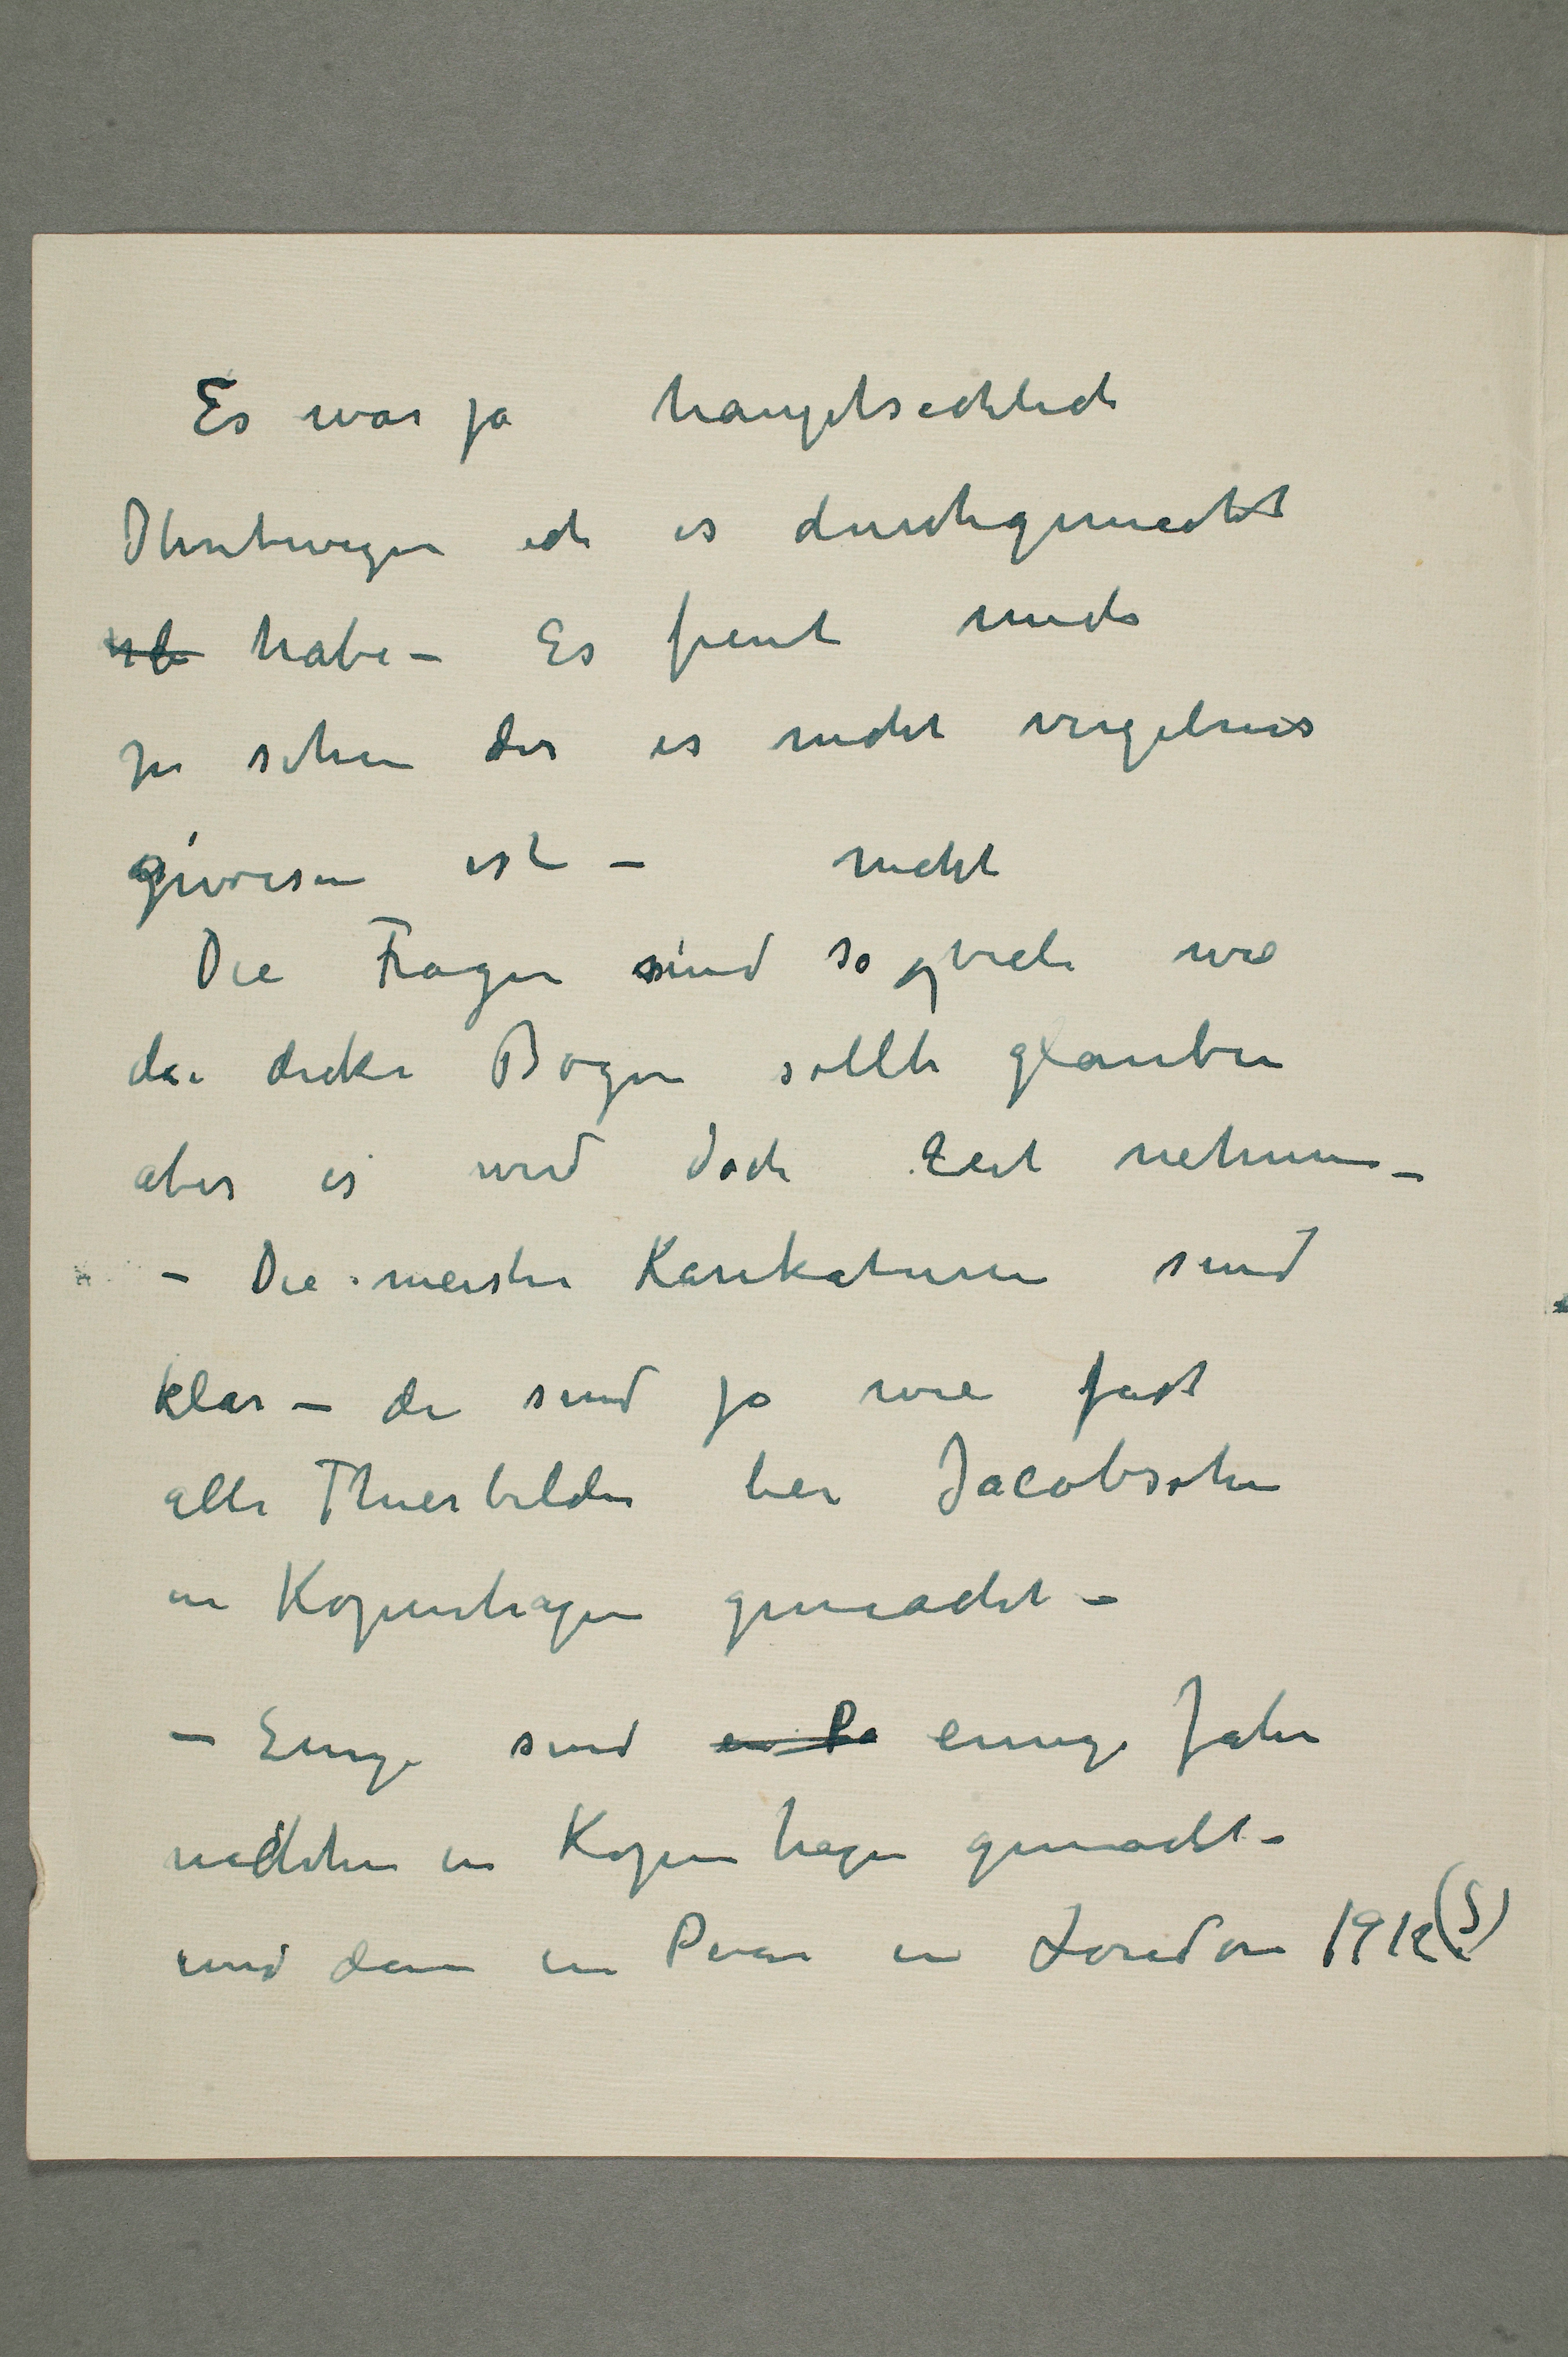 Es war ja hauptsächlich
Ihretwegen ich es durchgemacht
habe – Es freut mich
zu sehen das es nicht vergebens
gewesen ist – nicht
Die Fragen sind so viele wie
die dicke Bogen sollte glauben
aber es wird doch Zeit nehmen –
– Die meisten Karikaturen sind
klar – die sind ja wie fast
alle Thierbilder bei Jacobsohn
in Kopenhagen gemacht –
– Einige sind in Pa einige Jahre
nachher in Kopenhagen gemacht –
und dann in in London 191